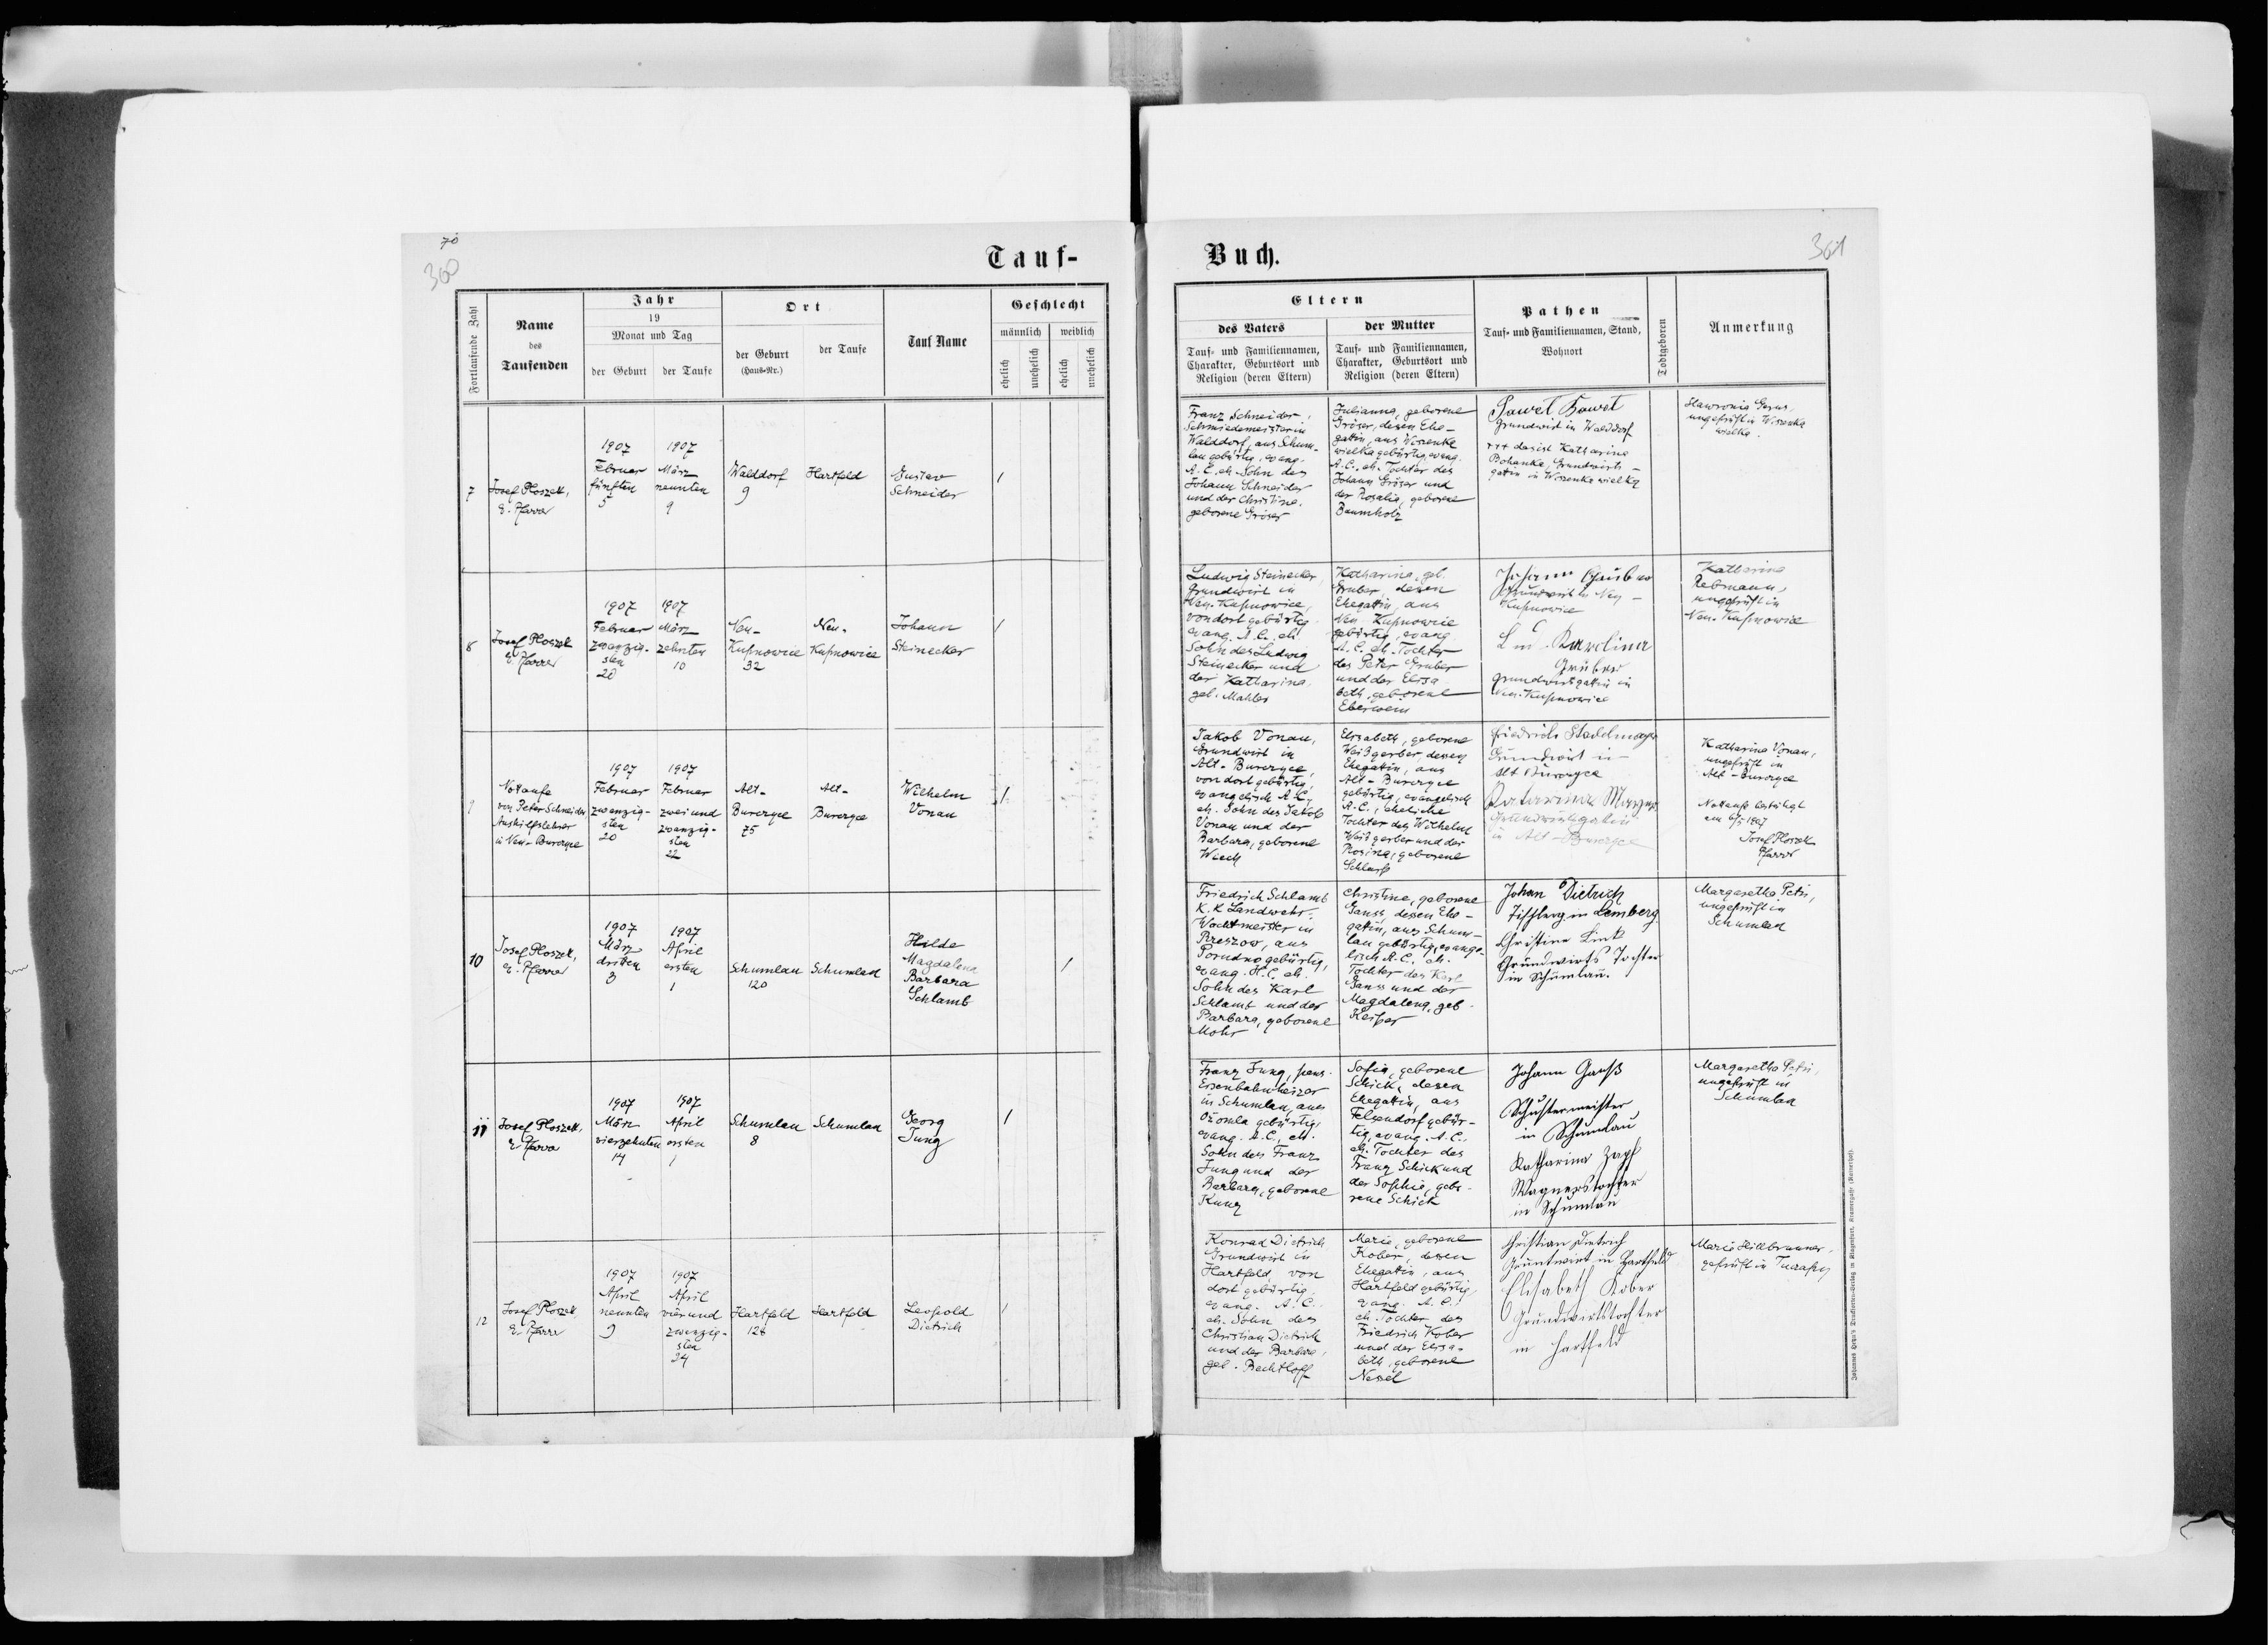 70
360
Tauf-
Fortlaufende Zahl
Name
des
Taufenden
Jahr
19
Monat und Tag
der Geburt
der Taufe
Ort
der Geburt
(Haus-Nr.)
der Taufe
Tauf Name
Geschlecht
männlich
weiblich
ehelich
unehelich
ehelich
unehelich
7
Josef Ploszek,
E. Pfarrer
1907
Februar
fünften
5
1907
März
neunten
9
Walddorf
9
Hartfeld
Gustav
Schneider
1
8
Josef Ploszek
E. Pfarrer
1907
Februar
zwanzig-
sten
20
1907
März
zehnten
10
Neu-
Kupnowice
32
Neu-
Kupnowice
Johann
Steinecker
1
9
Notaufe
von Peter Schneider
Aushilfslehrer
in Neu-Burczyce
1907
Februar
zwanzig-
sten
20
1907
Februar
zwei und
zwanzig-
sten
22
Alt-
Burczyce
75
Alt-
Burczyce
Wilhelm
Vonau
1
10
Josef Ploszek,
E. Pfarrer
1907
März
dritten
3
1907
April
ersten
1
Schumlau
120
Schumlau
Hilde
Magdalena
Barbara
Schlamb
1
11
Josef Ploszek,
E. Pfarrer
1907
März
vierzehnten
14
1907
April
ersten
1
Schumlau
8
Schumlau
Georg
Jung
1
12
Josef Ploszek
E. Pfarrer
1907
April
neunten
9
1907
April
vier und
zwanzig-
sten
24
Hartfeld
126
Hartfeld
Leopold
Dietrich
1
Buch.
361
Eltern
des Vaters
Tauf- und Familiennamen,
Charakter, Geburtsort und
Religion (deren Eltern)
der Mutter
Tauf- und Familiennamen,
Charakter, Geburtsort und
Religion (deren Eltern)
Pathen
Tauf- und Familiennamen, Stand,
Wohnort
Todtgeboren
Anmerkung
Franz Schneider,
Schmiedemeister in
Walddorf, aus Schum-
lau gebürtig, evang.
A. C., eh. Sohn des
Johann Schneider
und der Christine,
geborene Gröser
Julianna, geborene
Gröser, dessen Ehe-
gattin, aus Wiszenka
wielka gebürtig, evang.
A. C., eh. Tochter des
Johann Gröser und
der Rosalia, geborene
Baumholz
Grundwirt in Walddorf
+++ das ist Katharina
Bohanka, Grundwirts-
gattin in Wiszenka wielka
ungeprüft in Wiszenka
wielka.
Ludwig Steinecker,
Grundwirt in
Neu-Kupnowice,
von dort gebürtig
evang. A. C., eh.
Sohn des Ludwig
Steinecker und
der Katharina,
geb. Mahler
Katharina, geb.
Gruber, dessen
Ehegattin, aus
Neu-Kupnowice
gebürtig, evang.
A. C. eh. Tochter
des Peter Gruber
und der Elisa
beth, geborene
Eberwein
Grundwirt in Neu-
Kupnowice
Karolina
Gruber
Grundwirtsgattin in
Neu-Kupnowice
Katharina
Rebmann,
ungeprüft in
Neu-Kupnowice
Jakob Vonau,
Grundwirt in
Alt-Burczyce,
von dort gebürtig,
evangelisch A. C.,
eh. Sohn des Jakob
Vonau und der
Barbara, geborene
Elisabeth, geborene
Weißgerber, dessen
Ehegattin, aus
Alt-Burczyce
gebürtig, evangelisch
A. C., eheliche
Tochter des Wilhelm
Weißgerber und der
Rosina, geborene
Friedrich Stadelmayer
Grundwirt in
Alt Burczyce
Katarina
Grundwirtsgattin
in Alt-Burczyce
Katharina Vonau,
ungeprüft in
Alt-Burczyce
Notaufe bestätigt
am 6/5 1907
Josef Ploszek
Pfarrer
Friedrich Schlamb
K. K. Landwehr-
Wachtmeister in
Rzeszow, aus
Porudno gebürtig,
evang. H. C., eh.
Sohn des Karl
Schlamb und der
Barbara, geborene
Mohr
Christine, geborene
Ganss, dessen Ehe-
gattin, aus Schum-
lau gebürtig, evange-
lisch A. C., eh.
Tochter des Karl
Ganss und der
Magdalena, geb.
Keiper
Johan Dietrich
in Lemberg
Christina Link
Grundwirts Tochter
in Schumlau.
Margaretha Petri,
ungeprüft in
Schumlau
Franz Jung, pens.
Eisenbahnheizer
in Schumlau, aus
Ożomla gebürtig,
evang. A. C., eh.
Sohn des Franz
Jung und der
Barbara, geborene
Kunz
Sofia, geborene
Schick, dessen
Ehegattin, aus
Felzendorf gebür-
tig, evang. A. C.,
eh. Tochter des
Franz Schick und
der Sophie, gebo-
rene Schick
Johann Ganß
Schustermeister
in Schumlau
Katharina Zapf
Wagnerstochter
in Schumlau
Margaretha Petri,
ungeprüft in
Schumlau
Konrad Dietrich
Grundwirt in
Hartfeld, von
dort gebürtig,
evang. A. C.
eh. Sohn des
Christian Dietrich
und der Barbara,
geb. Bechtloff
Marie, geborene
Kober, dessen
Ehegattin, aus
Hartfeld gebürtig,
evang. A. C.,
eh. Tochter des
Friedrich Kober
und der Elisa-
beth, geborene
Nessel
Christian Dietrich
Gruntwirt in Hartfeld
Elisabeth Kober
Grundwirtstochter
in Hartfeld
Marie Hillbrunner,
geprüft in